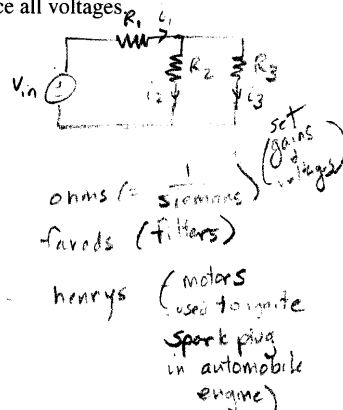 ce all voltages.
R₁ i₁
Vin R₂ R₃
i₂ i₃
ohms (= 1/siemens) (set gains & voltages)
farads (filters)
henrys (motors
used to ignite
spark plug
in automobile
engine)